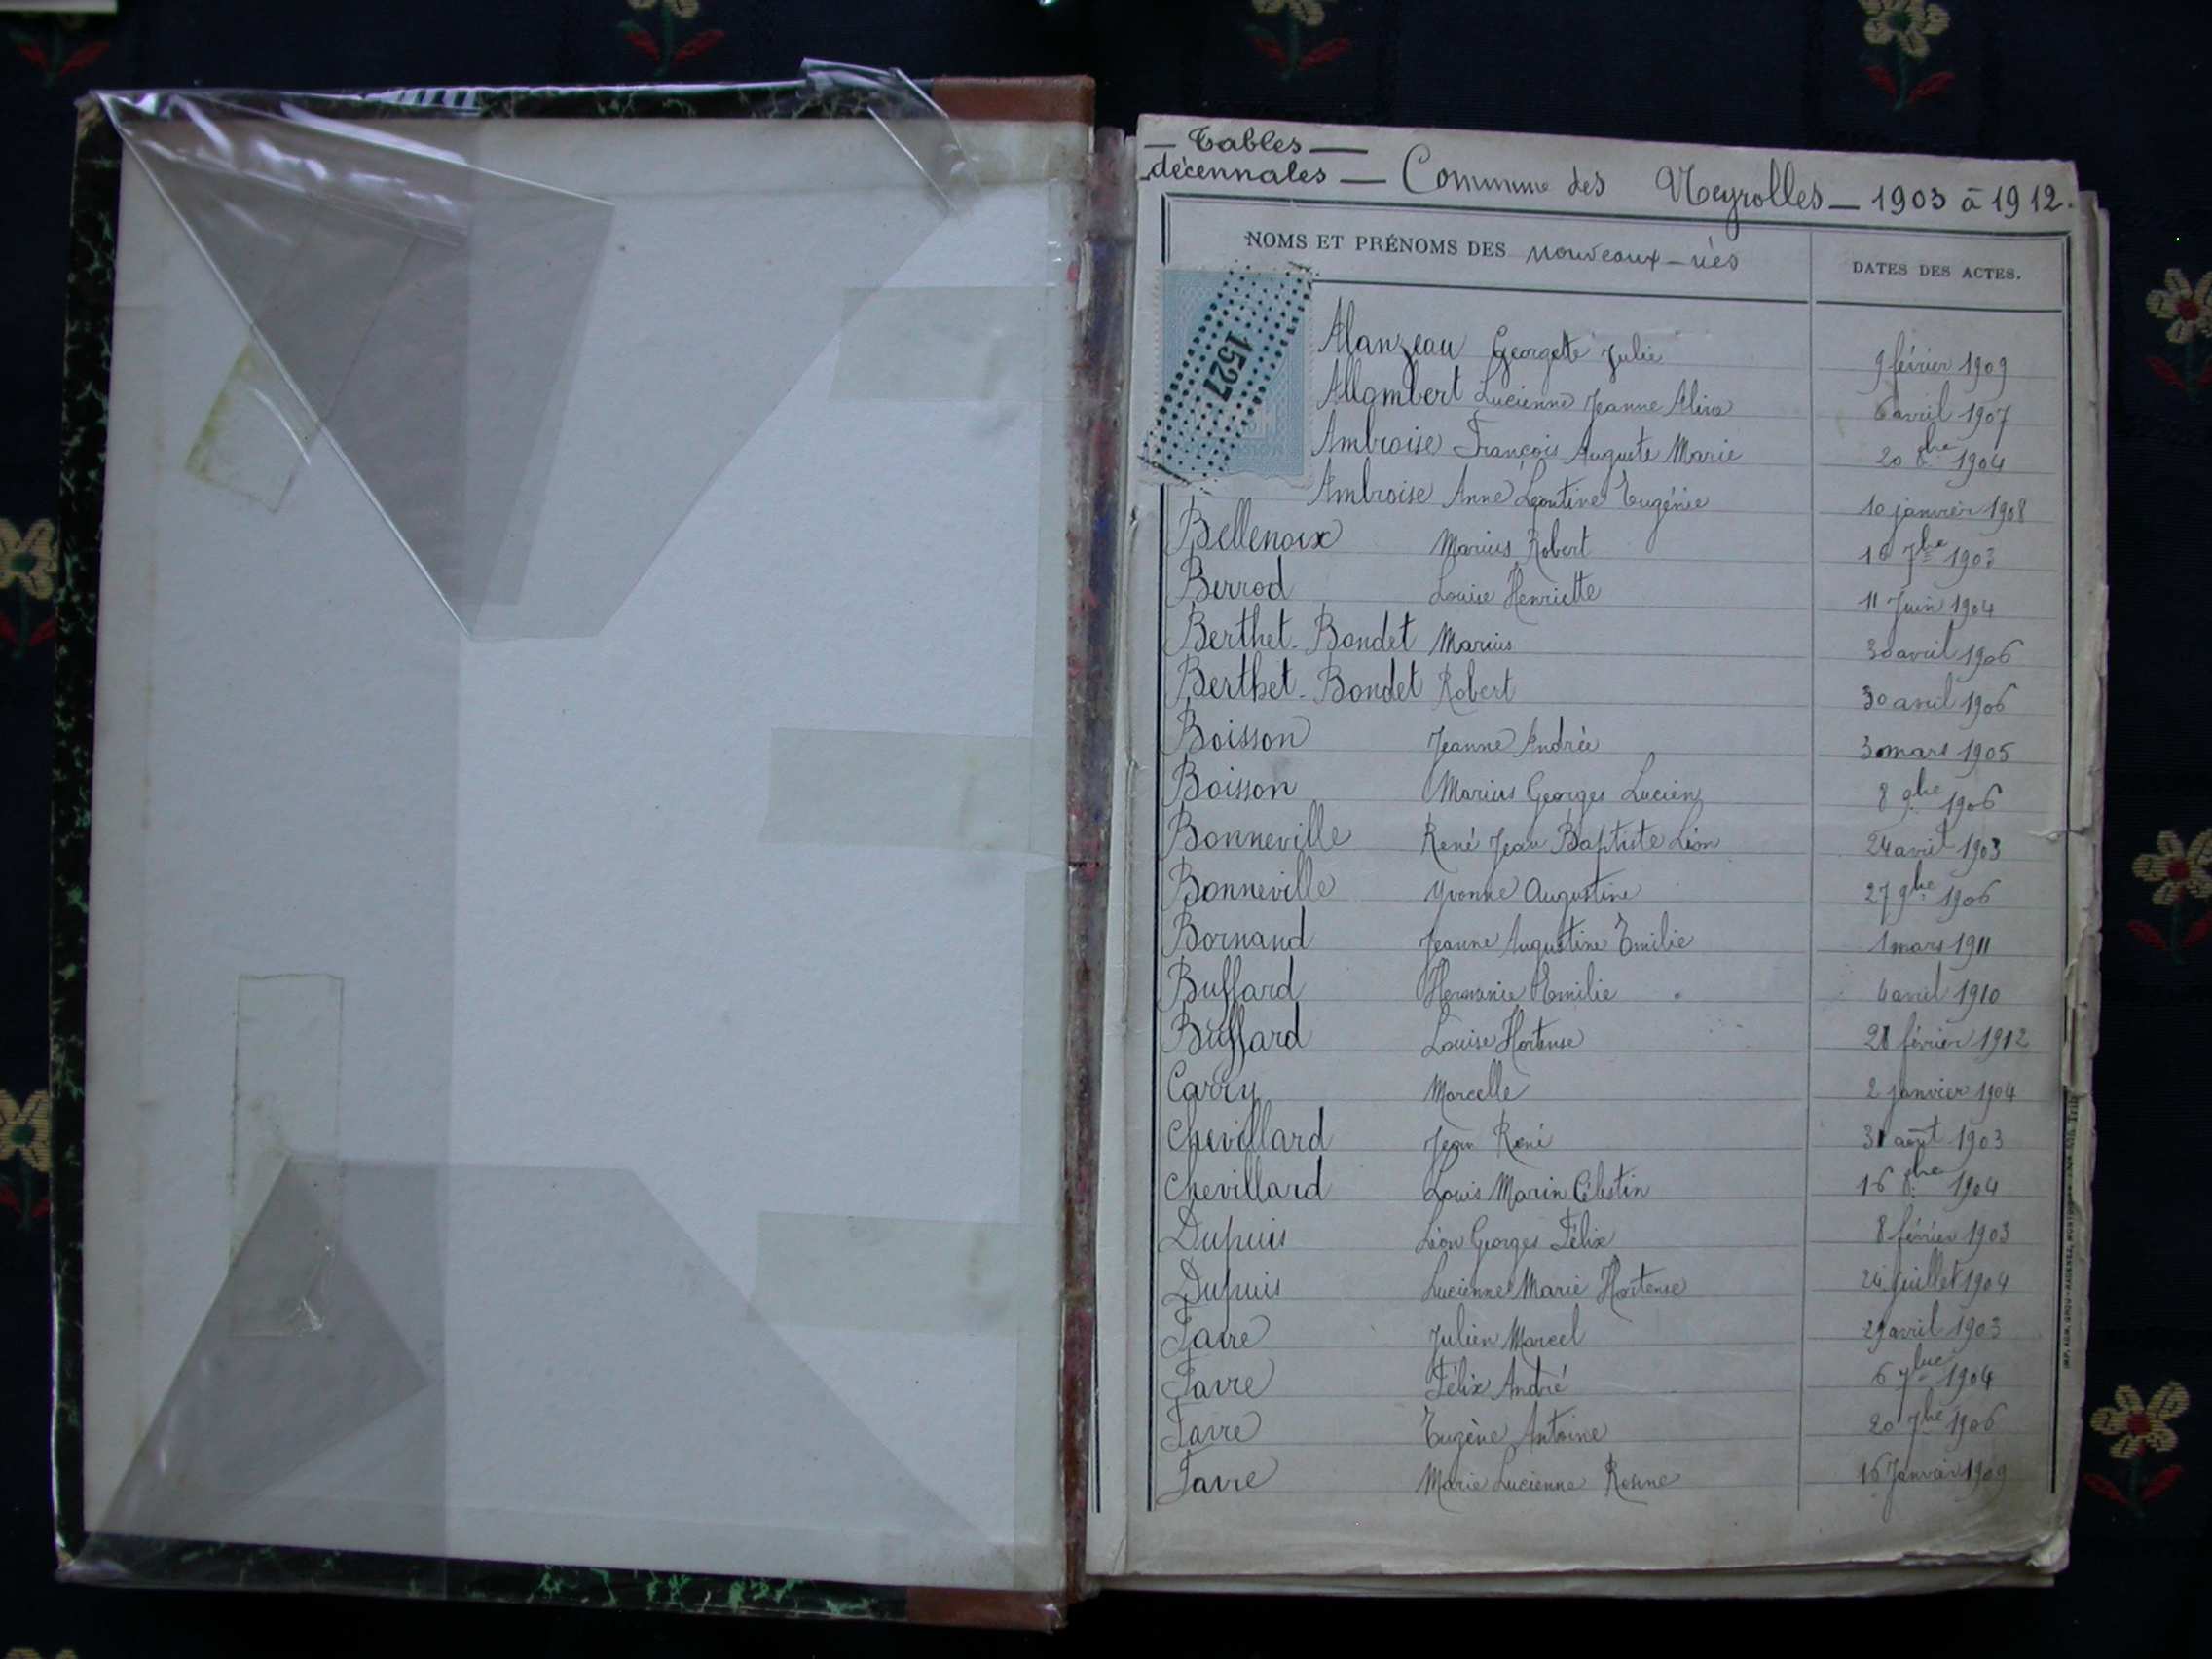 — Tables —
décennales — Commune des Neyrolles — 1903 à 1912.
NOMS ET PRÉNOMS DES nouveaux-nés DATES DES ACTES.
1527
Alanzeau Georgette Julie 9 février 1909
Allombert Lucienne Jeanne Alice 6 avril 1907
Ambroise François Auguste Marie 20 8bre 1904
Ambroise Anne Léontine Eugénie 10 janvier 1908
Bellenoix Marius Robert 16 7bre 1903
Berrod Louise Henriette 11 Juin 1904
Berthet-Bondet Marius 30 avril 1906
Berthet-Bondet Robert 30 avril 1906
Boisson Jeanne Andrée 3 mars 1905
Boisson Marius Georges Lucien 8 9bre 1906
Bonneville René Jean Baptiste Léon 24 avril 1903
Bonneville Yvonne Augustine 27 9bre 1906
Bornand Jeanne Augustine Emilie 1 mars 1911
Buffard Hermanie Emilie 6 avril 1910
Buffard Louise Hortense 21 février 1912
Carry Marcelle 2 janvier 1904
Chevillard Jean René 31 août 1903
Chevillard Louis Marin Célestin 16 8bre 1904
Dupuis Léon Georges Félix 8 février 1903
Dupuis Lucienne Marie Hortense 24 juillet 1904
Favre Julien Marcel 29 avril 1903
Favre Félix André 6 7bre 1904
Favre Eugène Antoine 20 7bre 1906
Favre Marie Lucienne Rosine 16 Janvier 1909